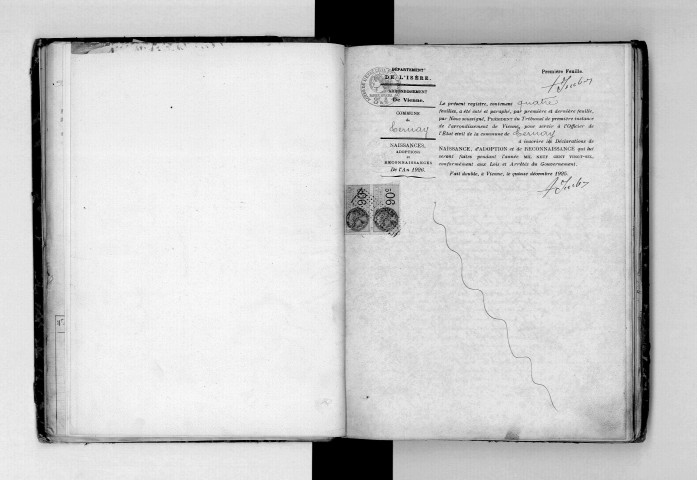 DÉPARTEMENT
DE L'ISÈRE.
ARRONDISSEMENT
De Vienne.
COMMUNE
de
Ternay
NAISSANCES,
ADOPTIONS
ET
RECONNAISSANCES
De l'An 1926.
Première Feuille.
Le présent registre, contenant quatre
feuilles, a été coté et paraphé, par première et dernière feuille,
par Nous soussigné, Président du Tribunal de première instance
de l'arrondissement de Vienne, pour servir à l'Officier de
l'Etat civil de la commune de Ternay
à inscrire de Déclarations de
NAISSANCE, d'ADOPTION et de RECONNAISSANCE qui lui
seront faites pendant l'année MIL NEUF CENT VINGT-SIX,
conformément aux Lois et Arrêtés du Gouvernement.
Fait double, à Vienne, le quinze décembre 1925.